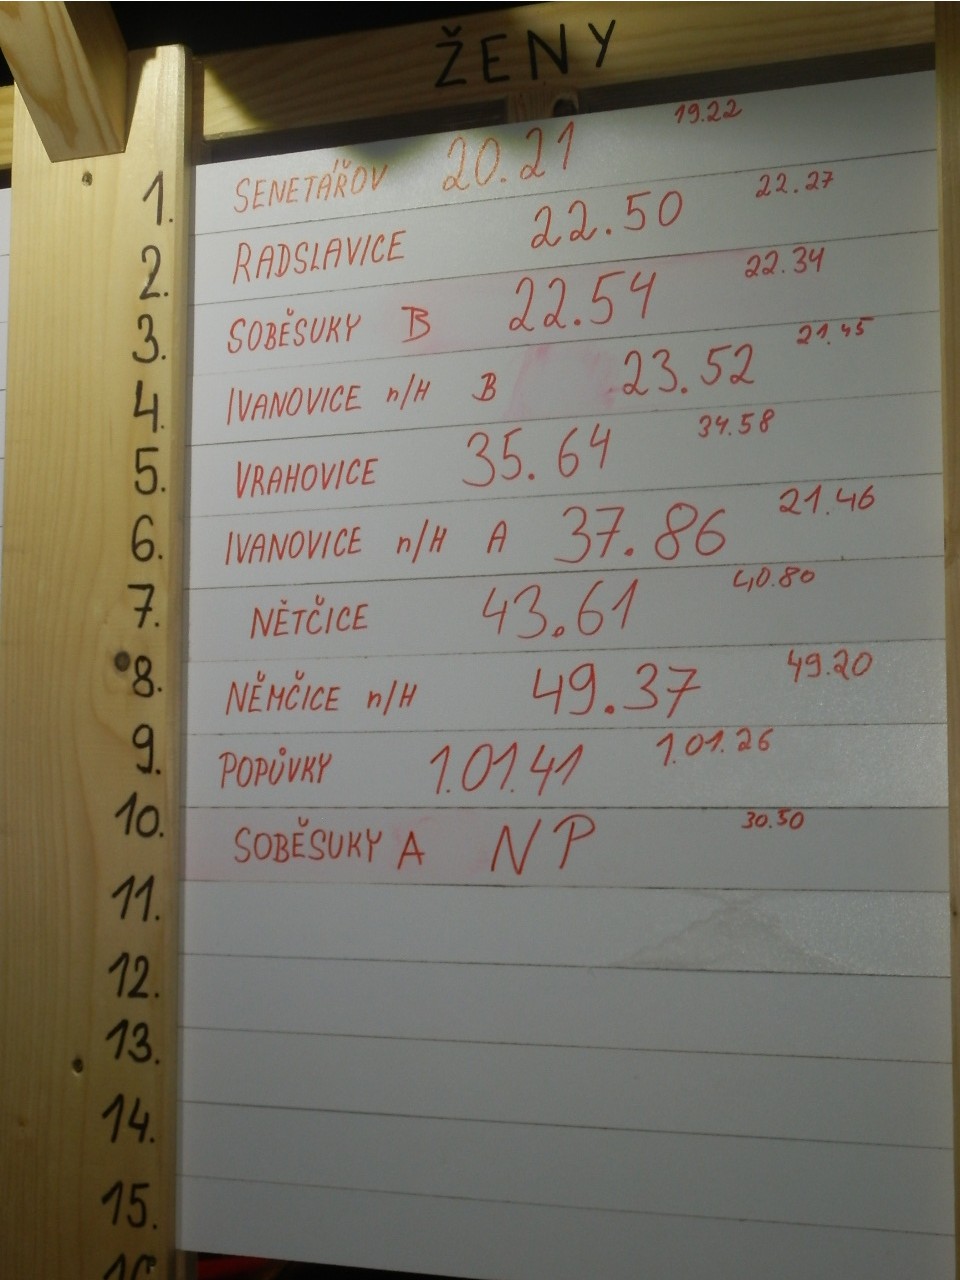 ŽENY
1. SENETÁŘOV 20.21 19.22
2. RADSLAVICE 22.50 22.27
3. SOBĚSUKY B 22.54 22.34
4. IVANOVICE n/H B 23.52 21.45
5. VRAHOVICE 35.64 34.58
6. IVANOVICE n/H A 37.86 21.46
7. NĚTČICE 43.61 40.80
8. NĚMČICE n/H 49.37 49.20
9. POPŮVKY 1.01.41 1.01.26
10. SOBĚSUKY A NP 30.50
11.
12.
13.
14.
15.